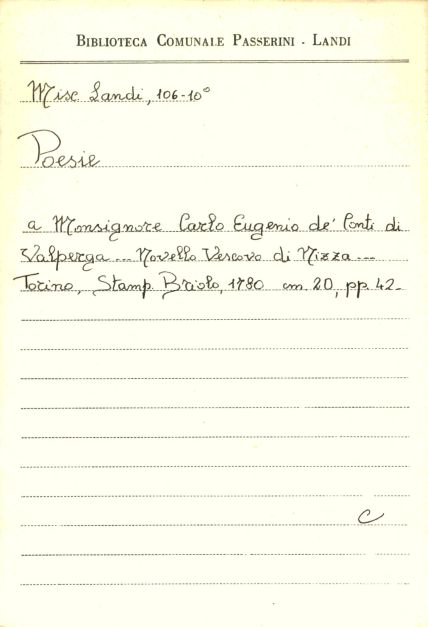 BIBLIOTECA COMUNALE PASSERINI - LANDI
Misc Landi, 106-10°
Poesie
a Monsignore Carlo Eugenio de' Conti di
Valperga ... Novello Vescovo di Nizza ...
Torino, Stamp. Briolo, 1780 cm. 20, pp. 42-
C